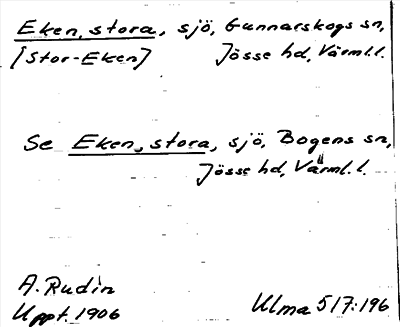 Eken, stora, sjö, Gunnarskogs sn,
[Stor-Eken] Jösse hd, Värml. l.
Se Eken, stora, sjö, Bogens sn,
Jösse hd, Värml. l.
A. Rudin
Uppt. 1906 Ulma 517:196